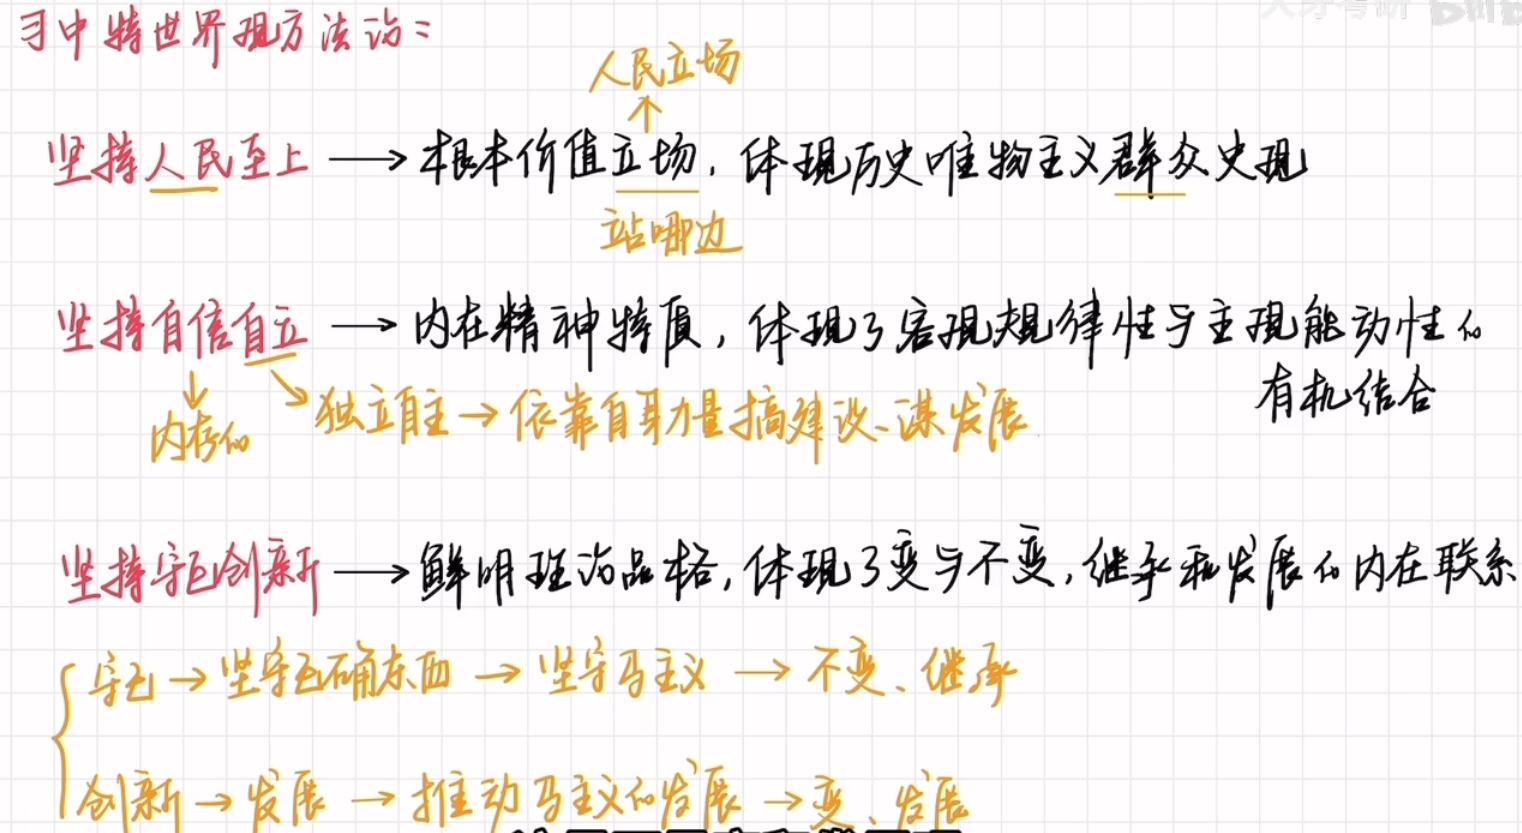 习中特世界观方法论:
人民立场
↑
坚持人民至上 → 根本价值立场,体现历史唯物主义群众史观
站哪边
坚持自信自立 → 内在精神特质,体现了客观规律性与主观能动性的
有机结合
内在的
独立自主 → 依靠自身力量搞建设、谋发展
坚持守正创新 → 鲜明理论品格,体现了变与不变,继承和发展的内在联系
守正 → 坚守正确东西 → 坚守马主义 → 不变、继承
创新 → 发展 → 推动马主义的发展 → 变、发展